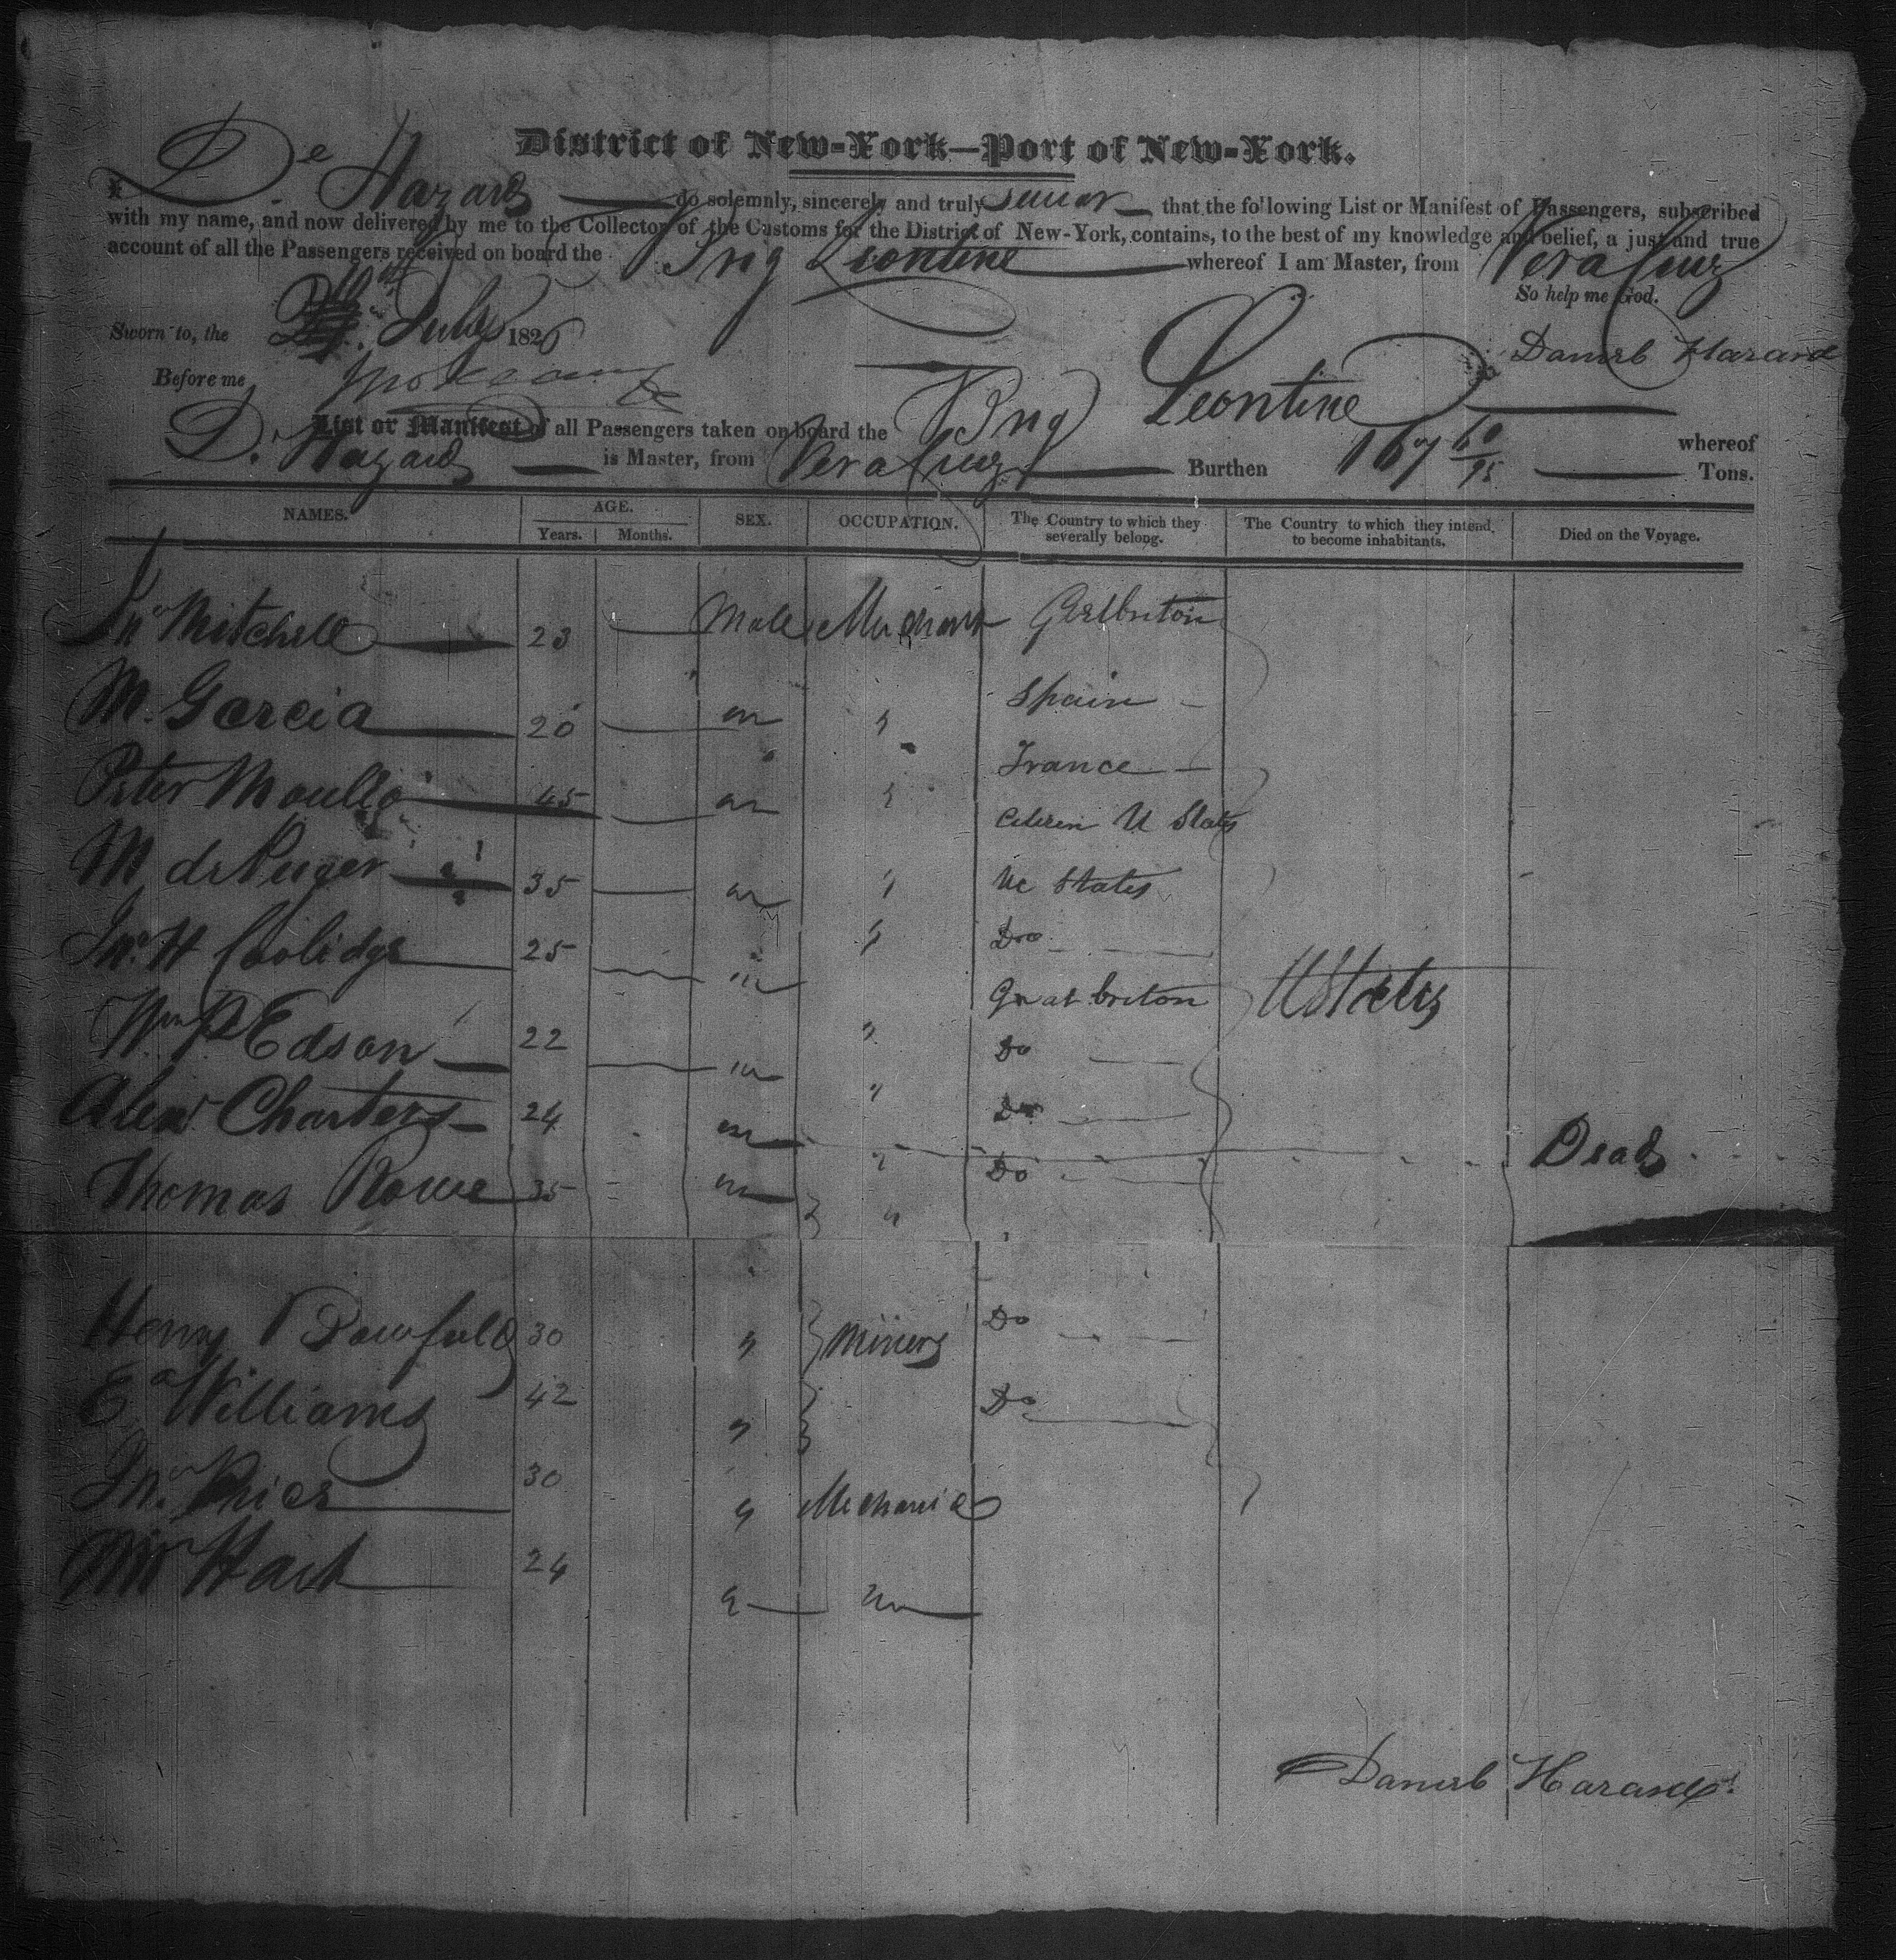 District of New-York—Port of New-York.
I, De Hazard do solemnly, sincerely and truly swear that the following List or Manifest of Passengers, subscribed
with my name, and now delivered by me to the Collector of the Customs for the District of New-York, contains, to the best of my knowledge and belief, a just and true
account of all the Passengers received on board the Brig Leontine whereof I am Master, from Vera Cruz
So help me God.
Sworn to, the July 1826
Daniel Hazard
Before me,
List or Manifest of all Passengers taken on board the Brig Leontine whereof
D. Hazard is Master, from Vera Cruz Burthen 167 60/95 Tons.
NAMES. AGE. Years. Months. SEX. OCCUPATION. The Country to which they severally belong. The Country to which they intend to become inhabitants. Died on the Voyage.
Jno Mitchell 23 Male Merchant Gr briton
M. Garcia 20 m " Spain
Peter 45 m " France
Citizen U States
M de 35 m " U States
Jno. H Coolidge 25 m " Do
Great briton U States
Wm P Edson 22 m " Do
Alexr Charters 24 m " Do
Dead
Thomas Rowe 35 m " Do
Henry 30 " Miners Do
Ed Williams 42 " Do
Jno. Price 30 " Mechanic
Wm Hart 24 "
Daniel Hazard